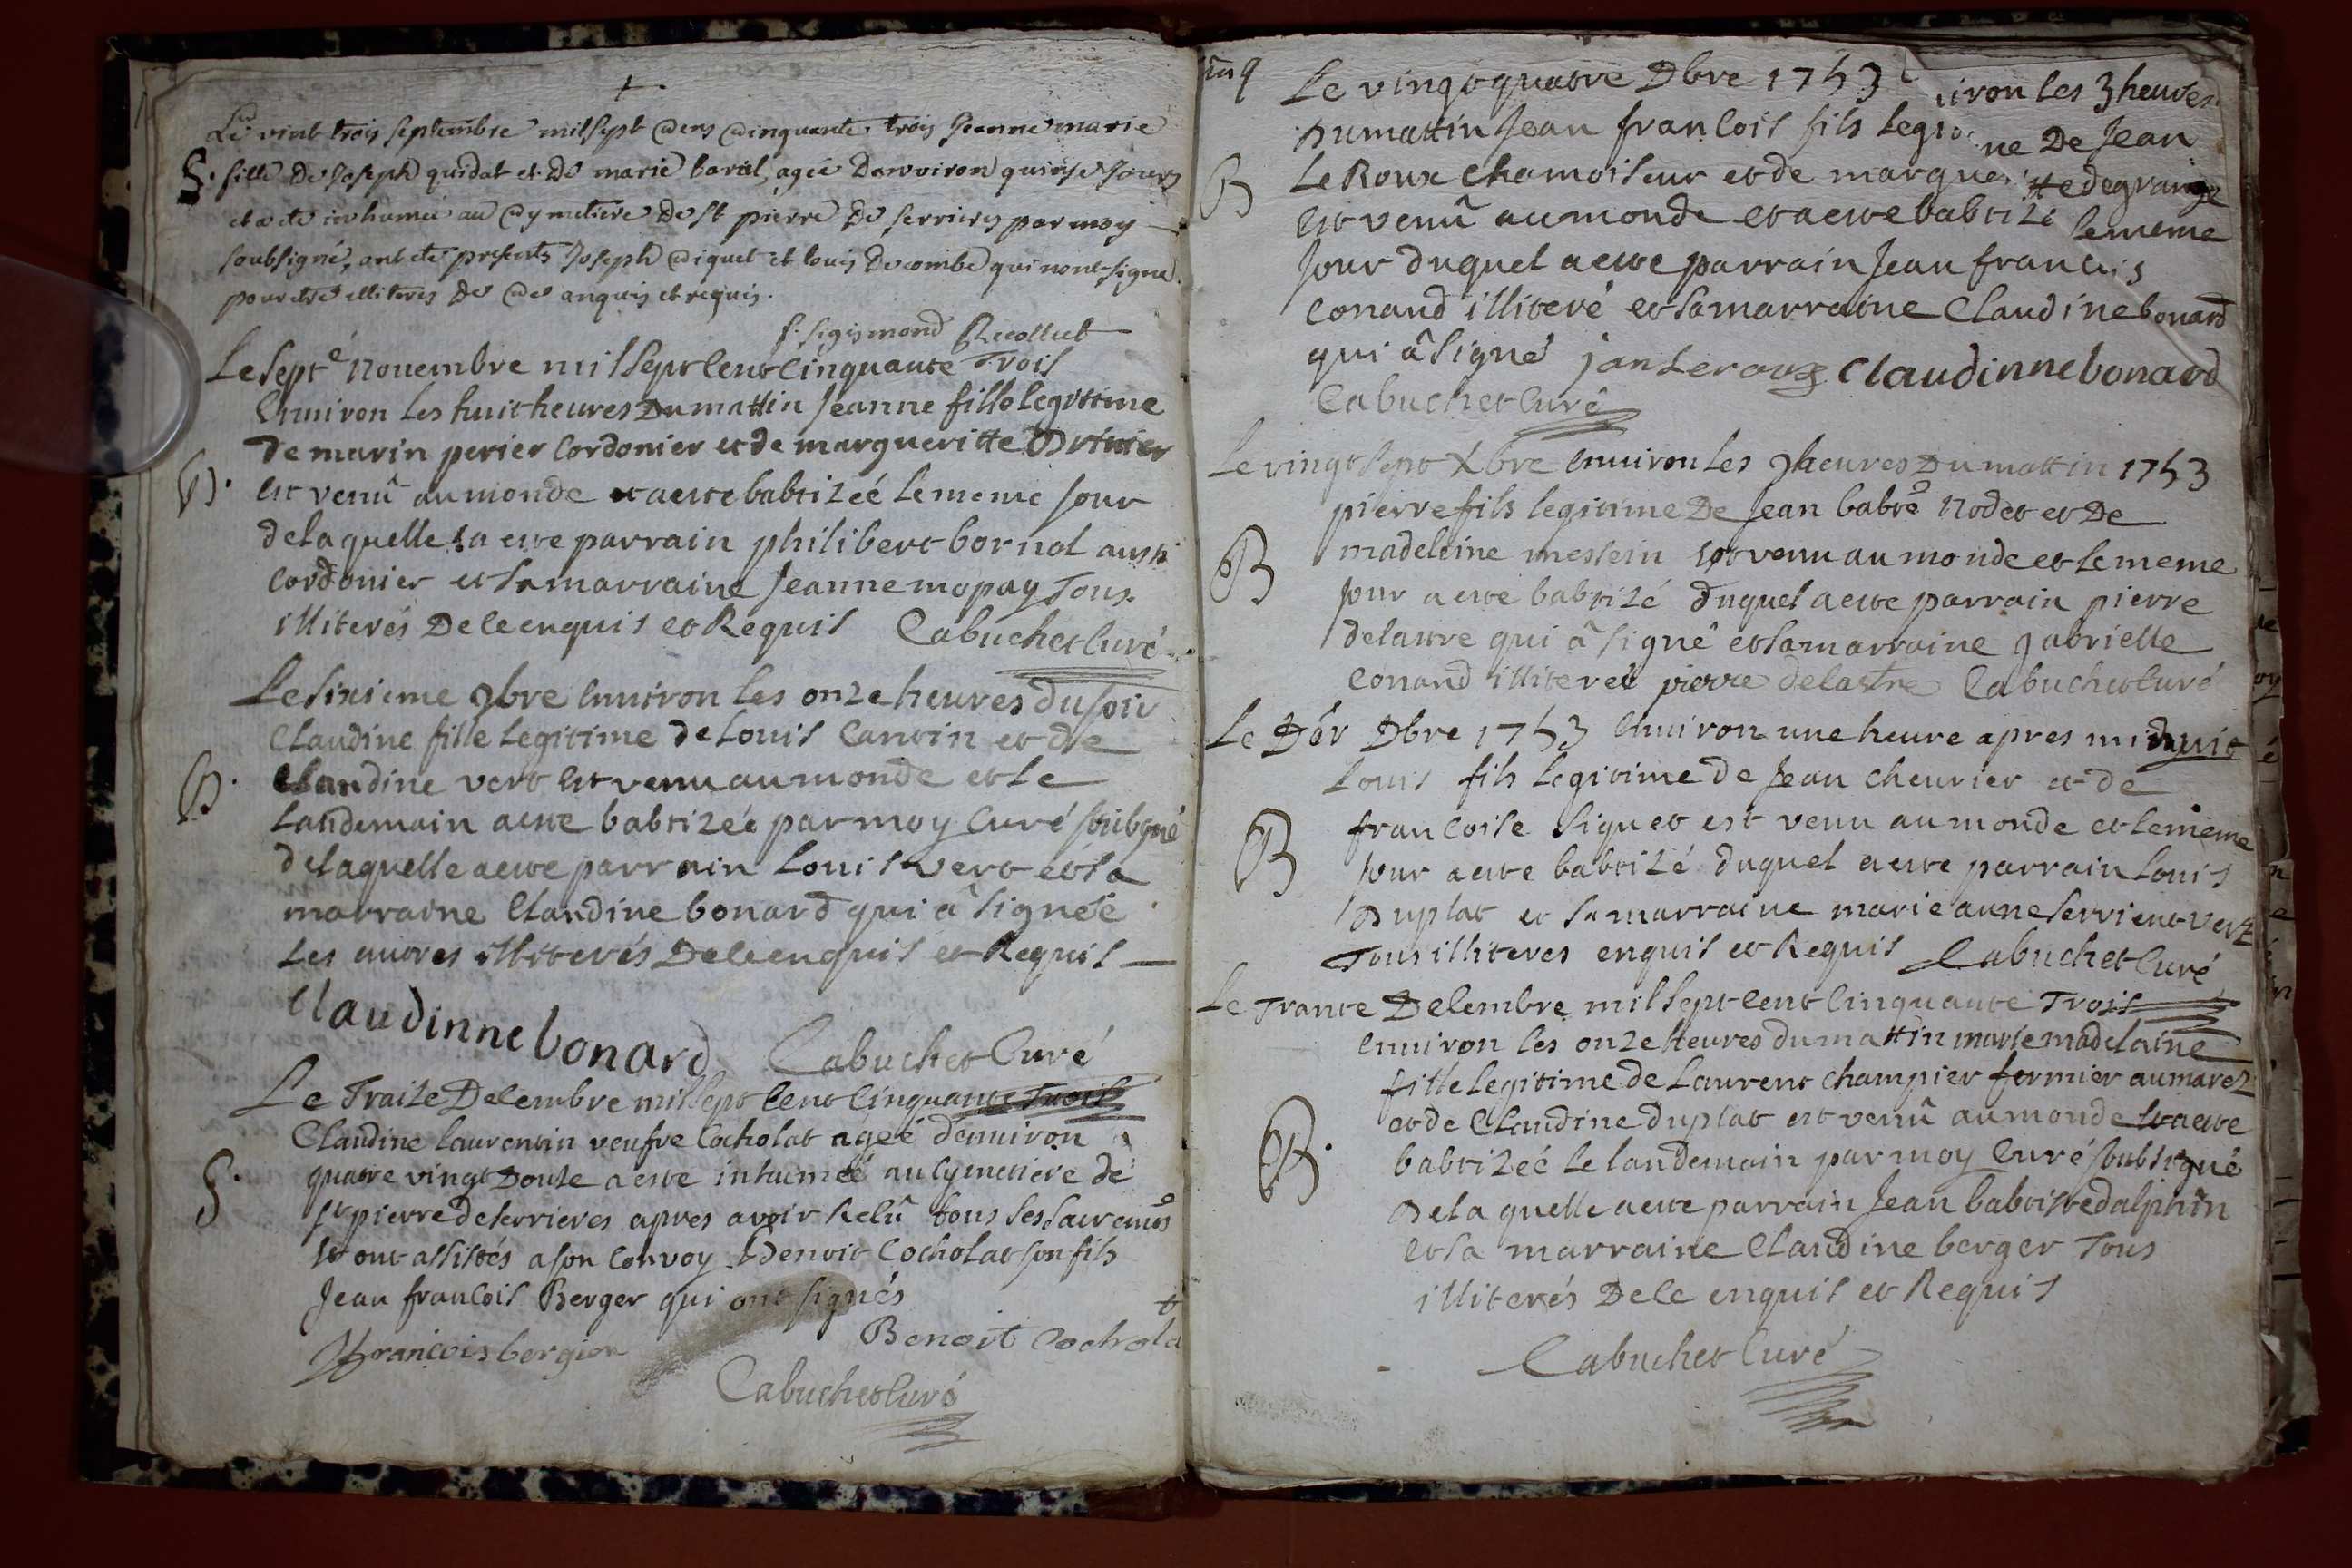 Le vint trois septembre mil sept cens cinquante trois Jeanne marie
S. fille de Joseph quidat et de marie barel, agée denviron quinse Jours
et a ete inhumée au cymetiere de st pierre de serrieres par moy
soubsigné, ont ete presents Joseph ciquet et louis decombe qui nont signe
pour etre elliteres de ce anquis et requis.
f. sigismond Recollect
Le septe novembre mil sept cent cinquante Trois
environ les huit heures du mattin Jeanne fille legitime
de marin perier cordonier et de margueritte
B. est venû au monde et a este babtizéé le meme Jour
de laquelle a este parrain philibert bornol aussi
cordonier et sa marraine Jeanne mopay Tous
illiterés de ce enquis et Requis Cabuchet Curé
Le sixieme 9bre environ les onze heures du soir
Claudine fille legitime de Louis Cantin et de
B. Claudine vert est venu au monde et le
landemain a este babtizéé par moy curé soubgné
de laquelle a este parrain Louis vert et sa
marraine Claudine bonard qui â signéé
Les autres illiterés de ce enquis et Requis
Claudinne bonard Cabuchet Curé
Le Traize Decembre mil sept cent cinquante Trois
Claudine laurentin veufve Cocholat ageé denuiron
S. quatre vingt douze a este inhumeé au cymetiere de
st pierre de serrieres apres avoir Recû tous ses sacremens
et ont assistés a son convoy Benoit Cocholat son fils
Jean francois Berger qui ont signés
Jfrancois bergier Benoit Cochola
Cabuchet Curé
Le vingt quatre Dbre 1753 uiron les 3 heures
du mattin Jean francois fils legi ne De Jean
B Le Roux chamoiseur et de margue itte degrange
est venû au monde et a este babtizé le meme
Jour duquel a este parrain Jean francois
Conand illiteré et sa marraine Claudine bonard
qui â signé jan Leroux Claudinne bonard
Cabuchet Curé
Le vingt sept Xbre environ les 9 heures du mattin 1753
pierre fils legitime De Jean babte Nodet et De
B madeleine messein est venu au monde et le meme
Jour a este babtizé duquel a este parrain pierre
delattre qui â signé et sa marraine gabrielle
Conand illiteréé pierre delastre Cabuchet Curé
Le Dér Dbre 1753 environ une heure apres midnuit
Louis fils legitime de Jean cheurier et de
B francoise siquet est venu au monde et le meme
Jour a este babtizé duquel a este parrain Louis
Duplat et sa marraine marie anne servient vert
Tous illiteres enquis et Requis Cabuchet Curé
Le Trante Decembre mil sept cent cinquante Trois
environ les onze heures du mattin marie madelaine
fille legitime de Laurent champier fermier au marez
et de Claudine duplat est venû au monde et a este
B. babtizéé le landemain par moy Curé soubsigné
De laquelle a este parrain Jean babtiste dalphin
et sa marraine Claudine berger Tous
illiterés De ce enquis et Requis
Cabuchet Curé